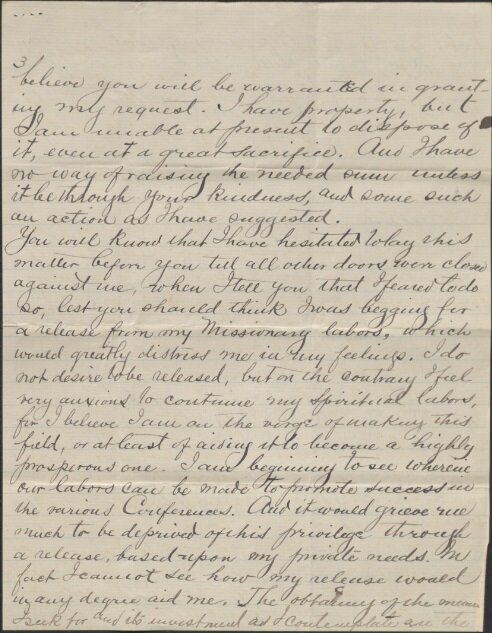 3
believe you will be warranted in grant-
ing my request. I have property, but
I am unable at present to dispose of
it, even at a great sacrifice. And I have
no way of raising the needed sum unless
it be through your kindness, and some such
an action as I have suggested.
You will know that I have hesitated to lay this
matter before you till all other doors were closed
against me, when I tell you that I feared to do
so, lest you should think I was begging for
a release from my Missionary labors, which
would greatly distress me in my feelings. I do
not desire to be released, but on the contrary I feel
very anxious to continue my Spiritual labors,
for I believe I am on the verge of making this
field, or at least of aiding it to become a highly
prosperous one. I am beginning to see wherein
our labors can be made to promote success in
the various Conferences. And it would grieve me
much to be deprived of this privilege through
a release, based upon my private needs. In
fact I cannot see how my release would
in any degree aid me. The obtaining of the means
I seek for and its investment as I contemplate are the